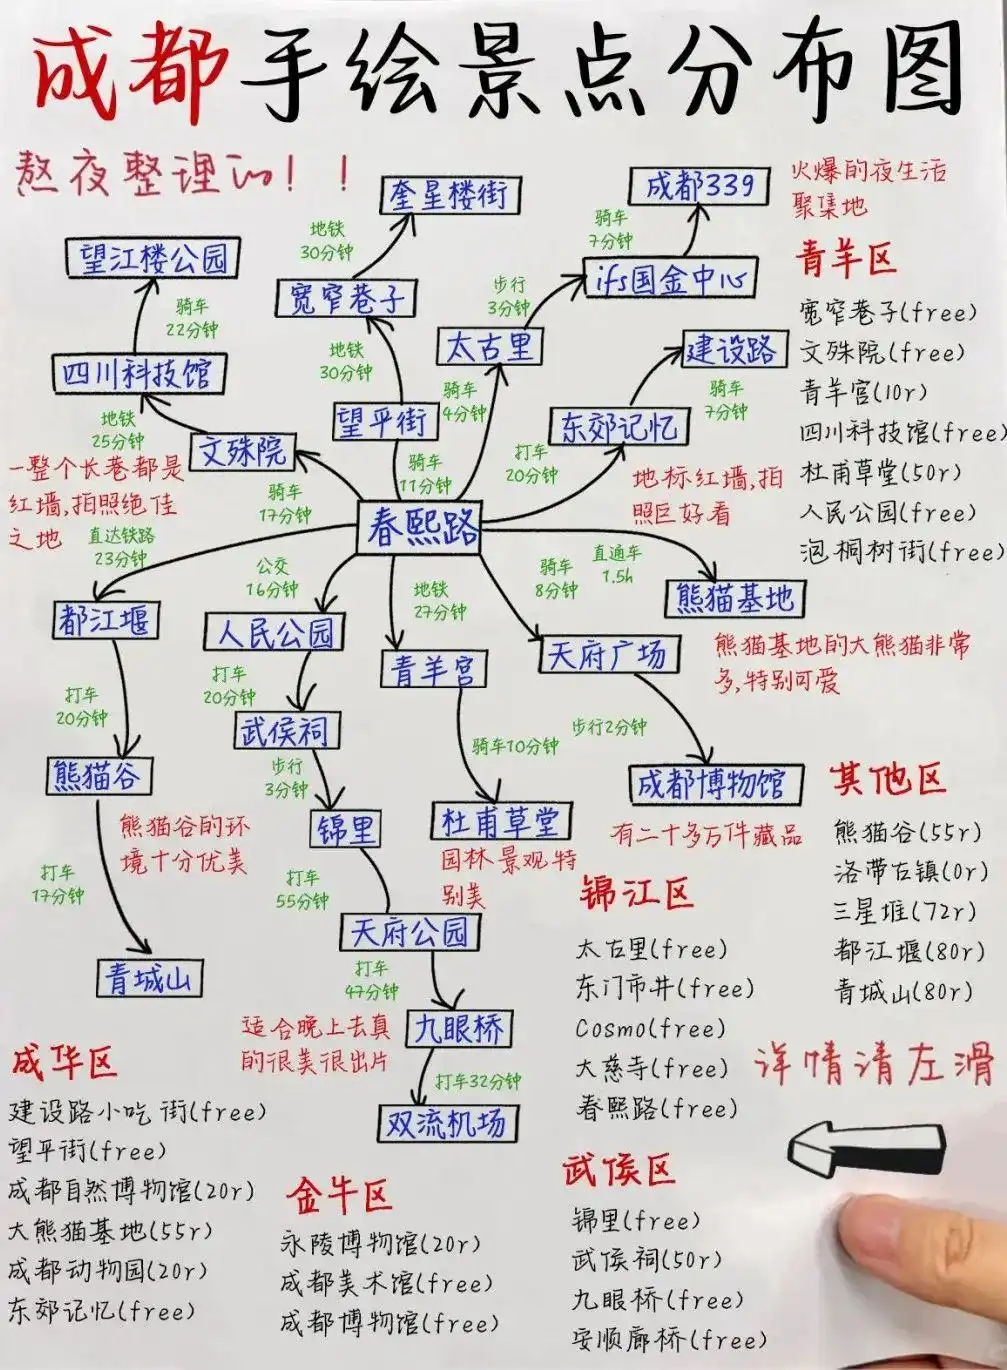 成都手绘景点分布图
熬夜整理的！！
奎星楼街
成都339
火爆的夜生活
聚集地
地铁
30分钟
骑车
7分钟
望江楼公园
青羊区
ifs国金中心
宽窄巷子
步行
3分钟
骑车
22分钟
宽窄巷子(free)
文殊院(free)
青羊宫(10r)
四川科技馆(free)
杜甫草堂(50r)
人民公园(free)
泡桐树街(free)
太古里
建设路
四川科技馆
地铁
30分钟
骑车
4分钟
骑车
7分钟
望平街
东郊记忆
地铁
25分钟
文殊院
打车
20分钟
一整个长巷都是
红墙,拍照绝佳
之地
骑车
11分钟
地标红墙,拍
照巨好看
骑车
17分钟
春熙路
直达铁路
23分钟
公交
16分钟
地铁
27分钟
骑车
8分钟
直通车
1.5h
都江堰
人民公园
青羊宫
天府广场
熊猫基地
熊猫基地的大熊猫非常
多,特别可爱
打车
20分钟
打车
20分钟
武侯祠
骑车10分钟
步行2分钟
熊猫谷
步行
3分钟
成都博物馆
其他区
锦里
杜甫草堂
熊猫谷的环
境十分优美
有二十多万件藏品
熊猫谷(55r)
洛带古镇(0r)
三星堆(72r)
都江堰(80r)
青城山(80r)
园林景观特
别美
打车
17分钟
打车
55分钟
锦江区
天府公园
太古里(free)
东门市井(free)
Cosmo(free)
大慈寺(free)
春熙路(free)
青城山
打车
47分钟
九眼桥
适合晚上去真
的很美很出片
打车32分钟
双流机场
详情请左滑
成华区
建设路小吃街(free)
望平街(free)
成都自然博物馆(20r)
大熊猫基地(55r)
成都动物园(20r)
东郊记忆(free)
金牛区
永陵博物馆(20r)
成都美术馆(free)
成都博物馆(free)
武侯区
锦里(free)
武侯祠(50r)
九眼桥(free)
安顺廊桥(free)